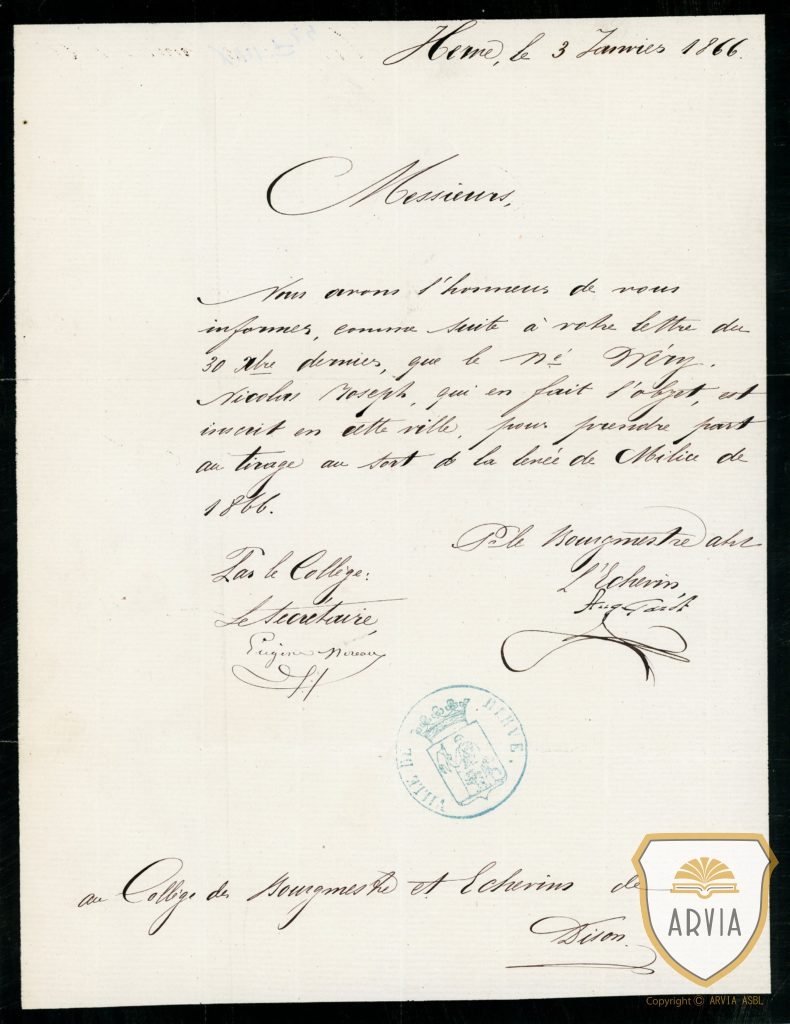 Herve, le 3 Janvier 1866.
Messieurs,
Nous avons l'honneur de vous
informer, comme suite à votre lettre du
30 Xbre dernier, que le né Dréry.
Nicolas Joseph, qui en fait l'objet, est
inscrit en cette ville, pour prendre part
au tirage au sort de la levée de Milice de
1866.
Pr le Bourgmestre abst
L'Echevin,
Par le Collège:
Le Secrétaire
Eugène
VILLE DE HERVE.
au Collège des Bourgmestre et Echevins de
Dison.
ARVIA
Copyright © ARVIA ASBL